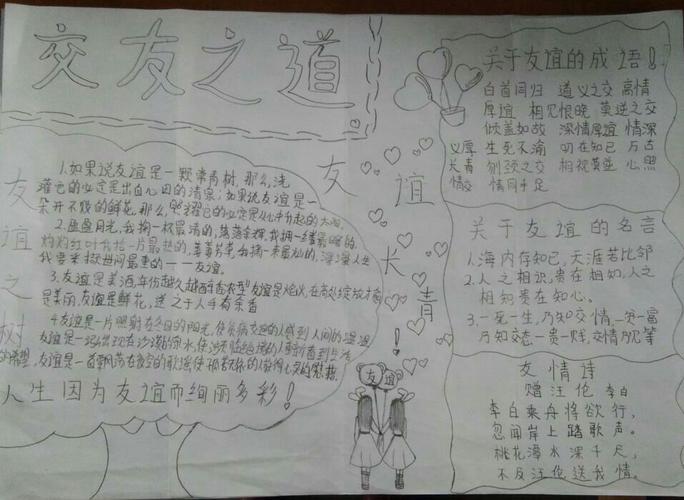 交友之道
友谊之树
1.如果说友谊是一颗常青树,那么,浇
灌它的必定是出自心田的清泉;如果说友谊是一
朵开不败的鲜花,那么,照耀它的必定是从心中升起的太阳。
2.盈盈月光,我掬一杯最清的,落落余辉,我拥一缕最暖的,
灼灼红叶,我拾一片最热的,萋萋芳草,我摘一束最灿的,漫漫人生
我要采撷世间最重的——友谊。
3.友谊是美酒,年份越久越醇香浓型,友谊是焰火,在高处绽放才
是美丽,友谊是鲜花,送之于人手有余香
4.友谊是一片照射在冬日的阳光,使贫病交迫的人感到人间的温暖
友谊是一泓出现在沙漠的泉水,使濒临绝境的人重新看到生活
的希望,友谊是一首飘荡在夜空的歌谣,使孤苦无依的人获得心灵的慰藉
人生因为友谊而绚丽多彩!
友谊长青!
友谊
关于友谊的成语!
白首同归 道义之交 高情
厚谊 相见恨晚 莫逆之交
倾盖如故 深情厚谊 情深
义厚 生死不渝 切在知己 万古
长青 刎颈之交 相视莫逆 心照
情交 情同手足
关于友谊的名言
1.海内存知己,天涯若比邻
2.人之相识,贵在相知,人之
相知贵在知心。
3.一死一生,乃知交情,一贫一富
乃知交态一贵一贱,交情乃见
友情诗
赠汪伦 李白
李白乘舟将欲行,
忽闻岸上踏歌声。
桃花潭水深千尺,
不及汪伦送我情。